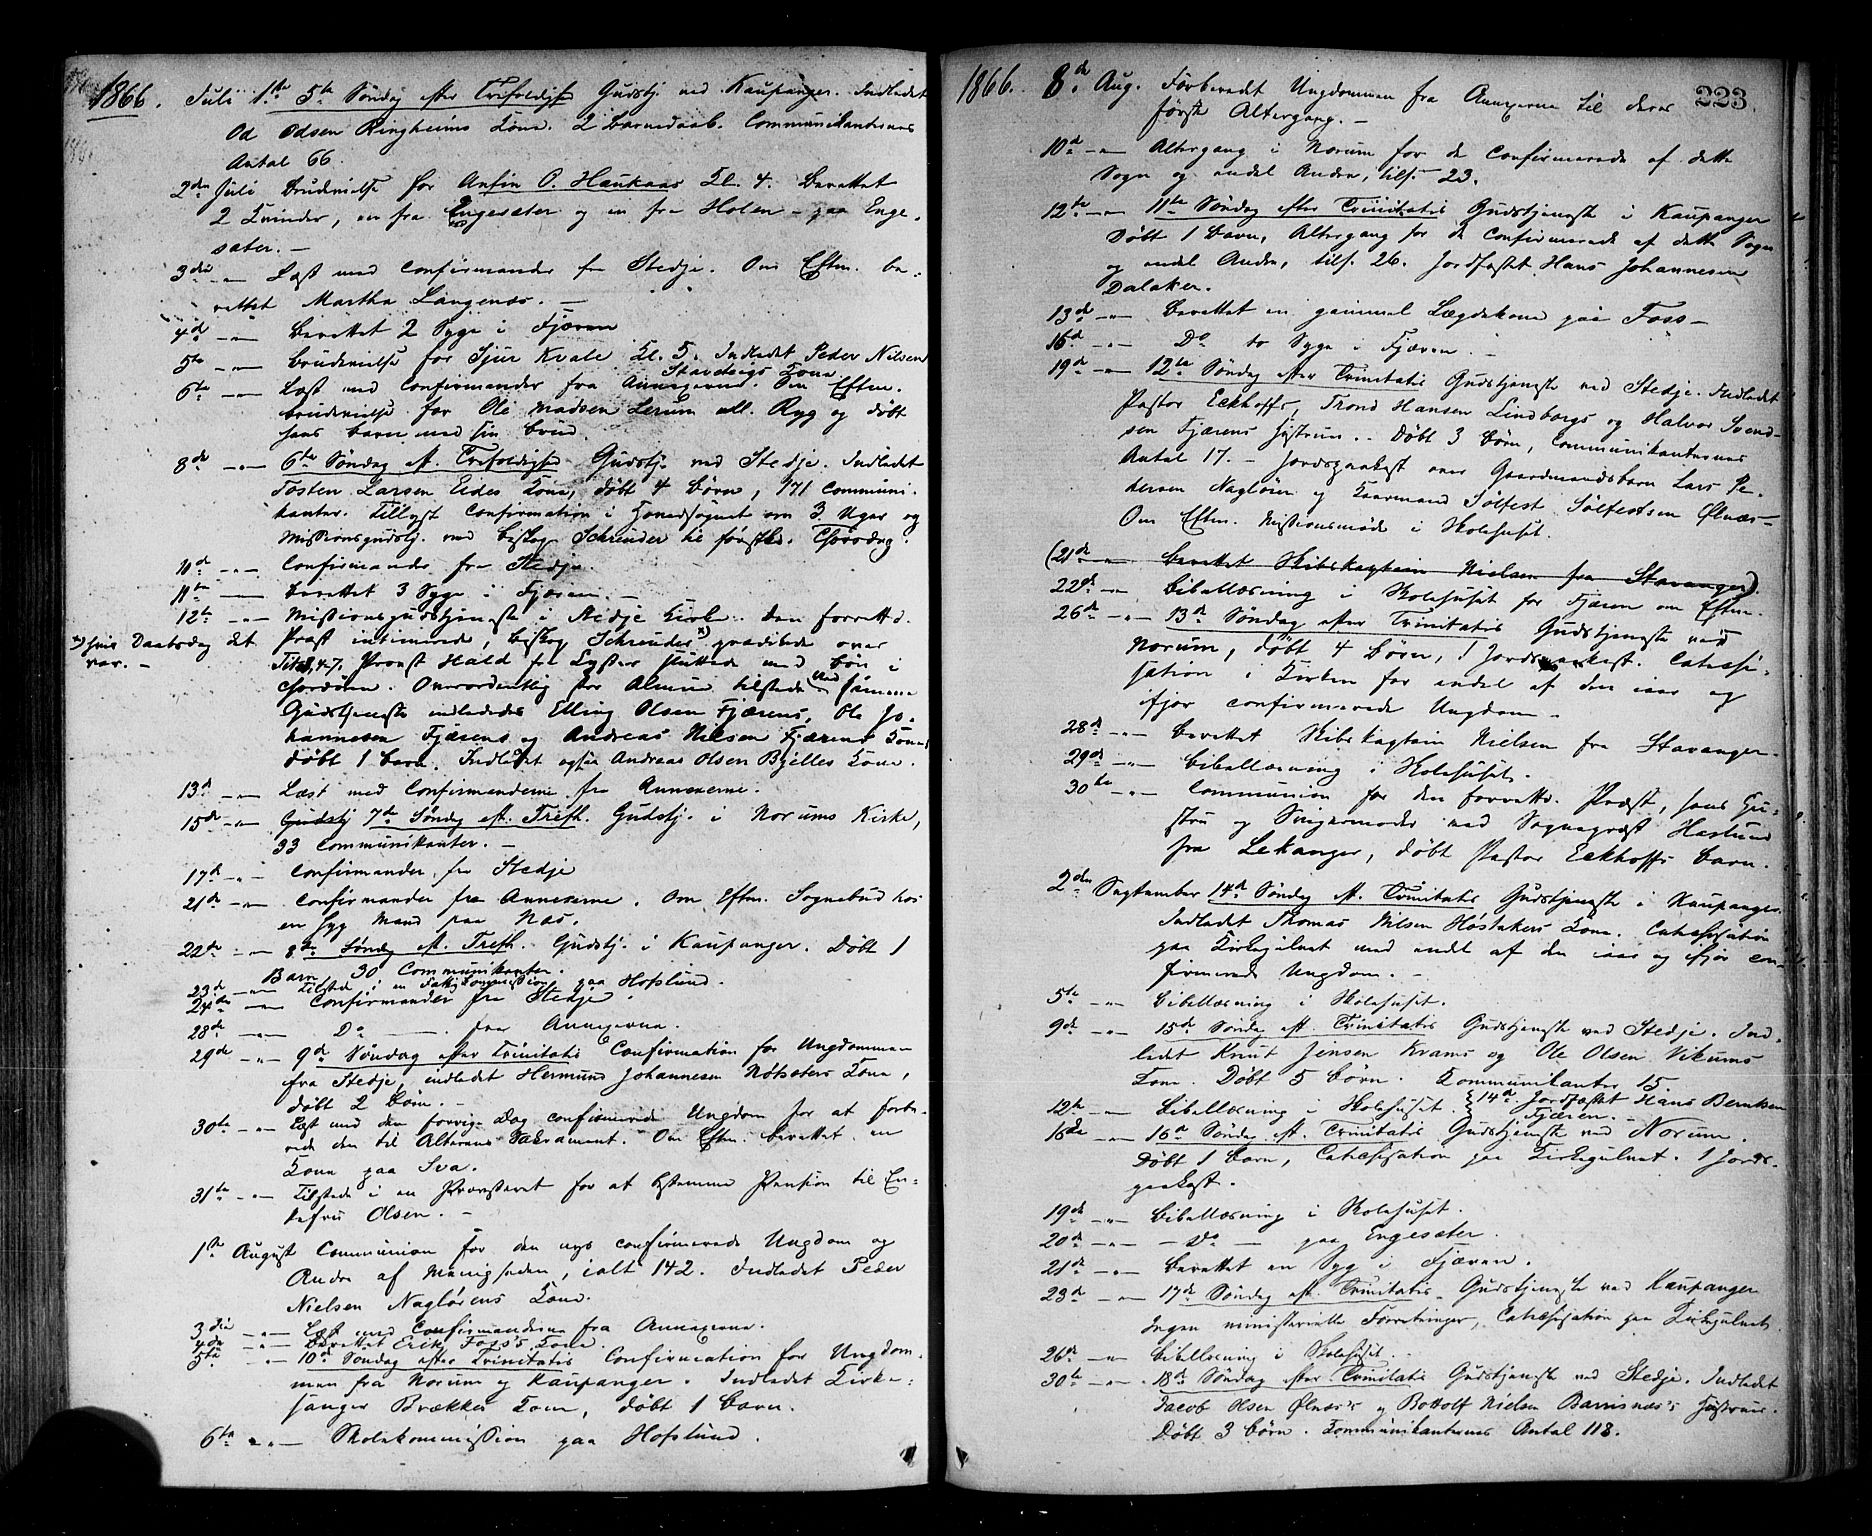 1866. Juli 1ste 5te Søndag efter Trefoldighed Gudstj. ved Kaupanger. Indledet
Od Odsen Ringheims Kone. 2 Barnedaab. Communikanternes
Antal 66.
2den Juli Brudevielse for Anfin O. Haukaas Kl. 4. Berettet
2 Kvinder, en fra Engesæter og en fra Holen - paa Enge-
sæter. -
3die -"- Læst med Confirmander fra Stedje. Om Eftm. be-
rettet Martha Langenæs. -
4d -"- Berettet 2 Syge i Fjæren
5te -"- Brudevielse for Sjur Kvale Kl. 5. Indledet Peder Nilsen
Stardsegs Kone.
6te -"- Læst med Confirmander fra Annexerne. Om Eftm.
brudevielse for Ole Madsen Lerum ell. Ryg og døbt
hans barn med sin brud.
8de -"- 6te Søndag eft. Trefoldighd Gudstj. ved Stedje. Indledet
Tosten Larsen Eides Kone, døbt 4 Børn, 171 Communi-
kanter. Tillyst Confirmation i Hovedsognet om 3 Uger og
Missionsgudstj. med Biskop Schreuder til førstk. Thorsdag.
10d -"- Confirmander fra Stedje.
11te -"- Berettet 3 Syge i Fjæren. -
12te -"- Missionsgudstjeneste i Stedje Kirke. Den forrettd.
Præst intimerede, Biskop Schreuder x) prædikede over
x) hvis Daabsdag det
var. -
Tit. 3,4-7. Provst Hald fra Lyster sluttede med Bøn i
Chordøren. Overordentlig stor Almue tilstede. Ved samme
Gudstjeneste indlededes Elling Olsen Fjærens, Ole Jo-
hannessen Fjærens og Andreas Nilsen Fjærens Koner
døbt 1 barn. Indledet også Andreas Olsen Bjelles Kone.
13d -"- Læst med Confirmanderne fra Annexerne.
15de -"- Gudstj 7de Søndag eft. Trefh. Gudstj. i Norums Kirke,
33 Communikanter. -
17d -"- Confirmander fra Stedje
21de -"- Confirmander fra Annexerne. Om Eftm. Sognebud hos
en syg Mand paa Næs.
22de -"- 8de Søndag eft. Trefh. Gudstj. i Kaupanger. Døbt 1
Barn, 30 Communikanter.
23d -"- Tilstede i en Fattigkommission paa Hofslund.
24de -"- Confirmander fra Stedje.
28de -"- Do - fra Annexerne.
29de -"- 9d Søndag efter Trinitatis Confirmation for Ungdommen
fra Stedje, indledet Hermund Johannesen Nølsæters Kone,
døbt 2 Børn. -
30te -"- Læst med den forrige Dag confirmerede Ungdom for at forbe-
rede den til Alterens Sakrament. Om Eftm. berettet en
Kone paa Sva.
31te -"- Tilstede i en Provsteret for at bestemme Pension til En-
kefru Olsen. -
1ste August Communion for den nys confirmerede Ungdom og
Andre af Menigheden, ialt 142. Indledet Peder
Nielsen Nagløres Kone.
3die -"- Læst med Confirmanderne fra Annexerne.
4de -"- Berettet Erik Foss's Kone
5te -"- 10d Søndag efter Trinitatis Confirmation for Ungdom-
men fra Norum og Kaupanger. Indledet Kirke-
sanger Brækkes Kone, døbt 1 barn.
6te -"- Skolekommission paa Hofslund.
223
1866. 8d Aug. Forberedt Ungdommen fra Annexerne til deres
første Altergang. -
10d -"- Altergang i Norum for de Confirmerede af dette
Sogn og endel Andre, tils. 23.
12te -"- 11te Søndag efter Trinitatis Gudstjeneste i Kaupanger
Døbt 1 barn, Altergang for de Confirmerede af dette Sogn
og endel Andre, tils. 26. Jordfæstet Hans Johannesen
Dalaker.
13d -"- Berettet en gammel Lægdekone paa Foss -
16d -"- Do to Syge i Fjæren. -
19de -"- 12te Søndag efter Trinitatis Gudstjeneste ved Stedje. Indledet
Pastor Eckhoffs, Trond Hansen Lindborgs og Halvor Svend-
sen Fjærens Hustruer. Døbt 3 Børn, Communikanternes
Antal 17. - Jordspaakast over Gaardmandsbarn Lars Pe-
dersen Nagløren og Kaarmand Sølfest Sølfestsen Ølnæs -
Om Eftm. Missionsmøde i Skolehuset.
(21de -"- Berettet Skibskaptein Nielsen fra Stavanger)
22de -"- Bibellæsning i Skolehuset for Fjæren om Eftm.
26de -"- 13d Søndag efter Trinitatis Gudstjeneste ved
Norum, døbt 4 Børn, 1 Jordspaakast. Catechi-
sation i Kirken for endel af den iaar og
ifjor confirmerede Ungdom -
28de -"- Berettet Skibskaptein Nielsen fra Stavanger -
29de -"- Bibellæsning i Skolehuset.
30te -"- Communion for den forrettd. Præst, hans Hu-
stru og Svigermoder ved Sognepræst Haslund
fra Lekanger, døbt Pastor Eckhoffs barn.
2den September 14d Søndag eft. Trinitatis Gudstjeneste i Kaupanger.
Indledet Thomas Nilsen Høstakers Kone. Catechisation
paa Kirkegulvet med endel af den iaar og ifjor con-
firmerede Ungdom. -
5te -"- Bibellæsning i Skolehuset.
9de -"- 15d Søndag eft. Trinitatis Gudstjeneste ved Stedje. Ind-
ledet Knut Jensen Kvams og Ole Olsen Vikums
Kone. Døbt 5 børn. Kommunikanter 15.
12te -"- Bibellæsning i Skolehuset. { 14d Jordfæstet Hans Berntsen
Fjæren. -
16de -"- 16d Søndag eft. Trinitatis Gudstjeneste ved Norum.
Døbt 1 barn, Catechisation paa Kirkegulvet. 1 Jords-
paakast.
19de -"- Bibellæsning i Skolehuset.
20de -"- - Do - paa Engesæter.
21de -"- Berettet en Syg i Fjæren.
23de -"- 17de Søndag eft. Trinitatis Gudstjeneste ved Kaupanger
Ingen ministerielle Forretninger, Catechisation paa Kirkegulvet.
26de -"- Bibellæsning i Skolehuset.
30te -"- 18de Søndag efter Trinitatis Gudstjeneste ved Stedje. Indledet
Jacob Olsen Ølnæs's og Bottolf Nielsen Barsnæs's Hustruer.
Døbt 3 børn. Kommunikanternes Antal 118.